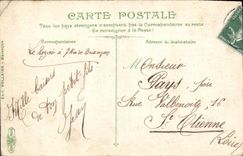 CARTE POSTALE
Tous les pays étrangers n'acceptent pas la Correspondance au recto
Se renseigner à la Poste
Correspondance
Adresse du destinataire
Le Rozier
Mille baisers
de ton petit fils
Jean
Monsieur
Pays père
Rue Villeboeuf, 16
St Etienne
(Loire)